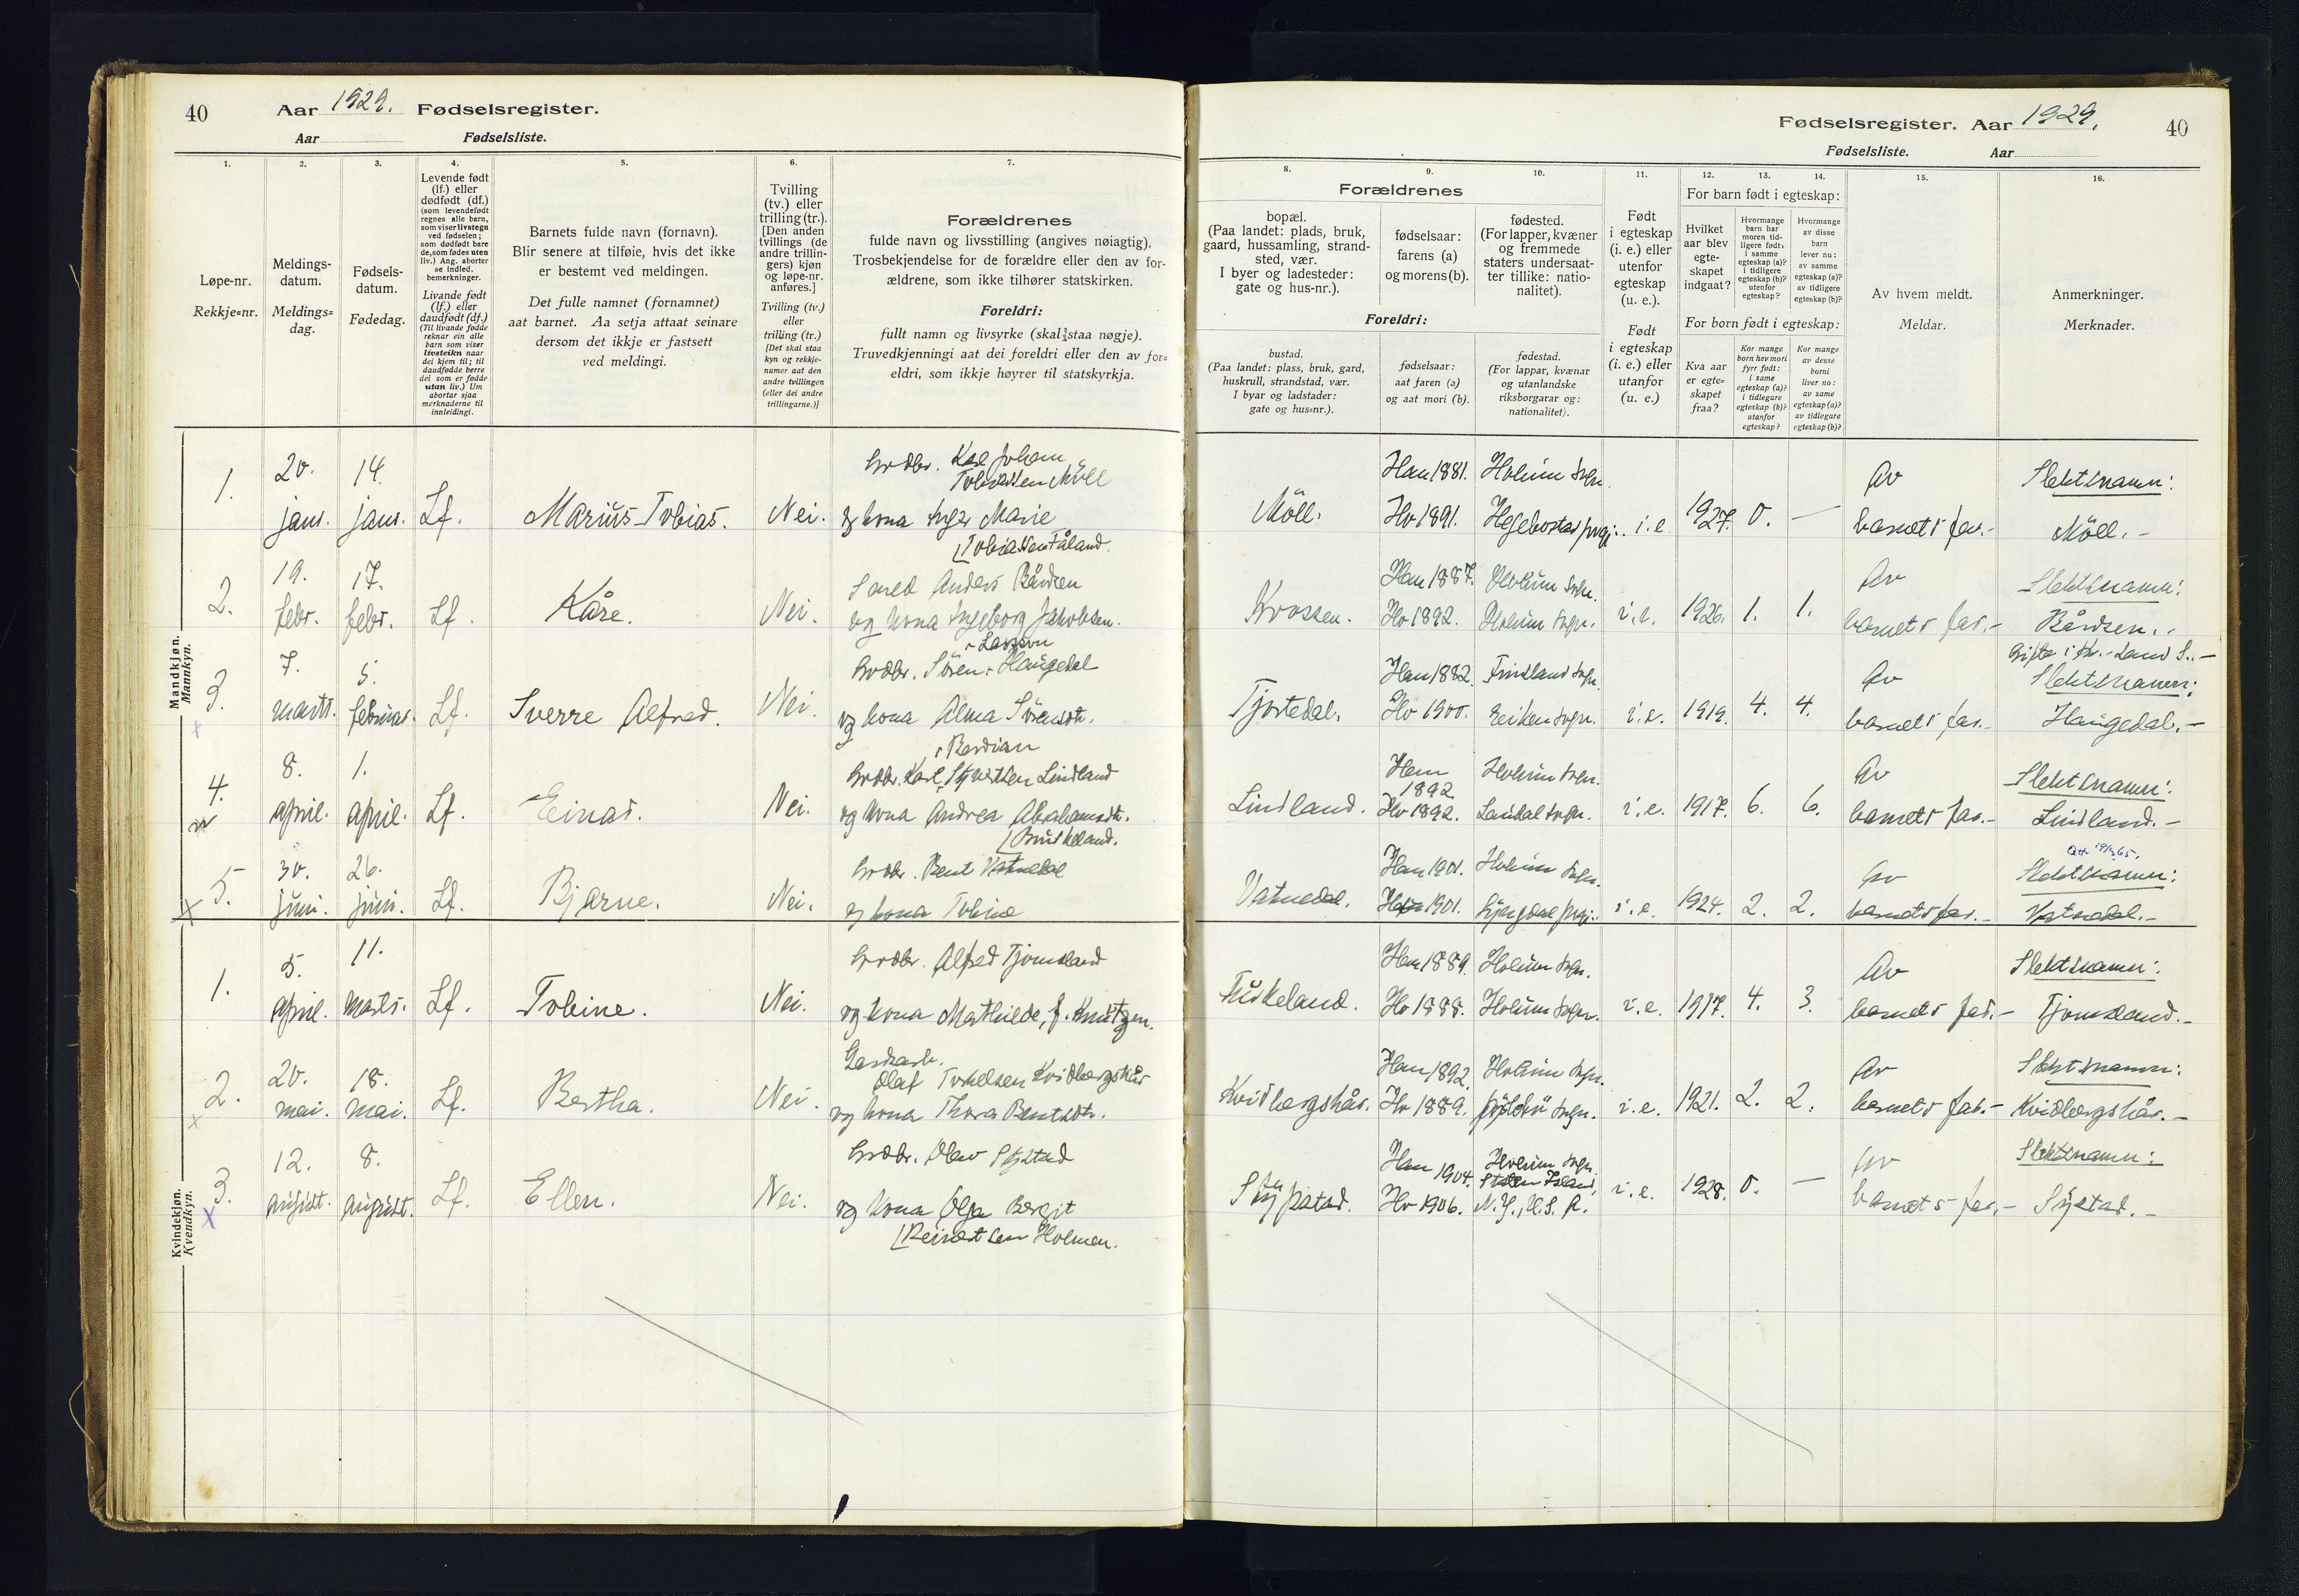 40
Aar 1929. Fødselsregister.
Aar Fødselsliste.
1.
2.
3.
4.
5.
6.
7.
Løpe-nr.
Rekkje=nr.
Meldings-
datum.
Meldings=
dag.
Fødsels-
datum.
Fødedag.
Levende født
(lf.) eller
dødfødt (df.)
(som levendefødt
regnes alle barn,
som viser livstegn
ved fødselen;
som dødfødt bare
de, som fødes uten
liv.) Ang. aborter
se indled.
bemerkninger.
Livande født
(lf.) eller
daudfødt (df.)
(Til livande fødde
reknar ein alle
barn som viser
livsteikn naar
dei kjem til; til
daudfødde berre
dei som er fødde
utan liv.) Um
abortar sjaa
merknaderne til
innleidingi.
Barnets fulde navn (fornavn).
Blir senere at tilføie, hvis det ikke
er bestemt ved meldingen.
Det fulle namnet (fornamnet)
aat barnet. Aa setja attaat seinare
dersom det ikkje er fastsett
ved meldingi.
Tvilling
(tv.) eller
trilling (tr.).
[Den anden
tvillings (de
andre trillin-
gers) kjøn
og løpe-nr.
anføres.]
Tvilling (tv.)
eller
trilling (tr.)
[Det skal staa
kyn og rekkje-
numer aat den
andre tvillingen
(eller dei andre
trillingarne.)]
Forældrenes
fulde navn og livsstilling (angives nøiagtig).
Trosbekjendelse for de forældre eller den av for-
ældrene, som ikke tilhører statskirken.
Foreldri:
fullt namn og livsyrke (skal staa nøgje).
Truvedkjenningi aat dei foreldri eller den av for=
eldri, som ikkje høyrer til statskyrkja.
Mandkjøn.
Mannkyn.
1.
20.
janr.
14.
janr.
Lf.
Marius Tobias.
Nei.
Grdbr. Karl Johan
Tobiassen Möll
og kona Inger Marie
Tobiassen Fåland.
2.
19.
febr.
17.
febr.
Lf.
Kåre.
Nei.
Anders Bårdsen
og kona Ingeborg Jakobsen.
3.
7.
marts.
5.
februar.
Lf.
Sverre Alfred.
Nei.
Larsson
Grdbr. Sören Haugedal
og kona Alma Sörensdtr.
4.
8.
april.
1.
april.
Lf.
Einar.
Nei.
Berdian
Grdbr. Karl Syvertsen Lindland
og kona Andrea Abrahamsdtr.
5.
30.
juni.
26.
juni.
Lf.
Bjarne.
Nei.
Grdbr. Bent Vatnedal
og kona Tobine
Kvindekjøn.
Kvendkyn.
1.
5.
april.
11.
marts.
Lf.
Tobine.
Nei.
Grdbr. Alfred Tjomsland
og kona Mathilde, f. Knutzen.
2.
20.
mai.
18.
mai.
Lf.
Bertha.
Nei.
Olaf Torkelsen Kvidbergskår
og kona Thora Bentsdtr.
3.
12.
august.
8.
august.
Lf.
Ellen.
Nei.
Grdbr. Olav Stystad
og kona Olga Bergit
Reinertsen Holmen.
Fødselsregister. Aar 1929.
40
Fødselsliste. Aar
8.
9.
10.
11.
12.
13.
14.
15.
16.
Forældrenes
bopæl.
(Paa landet: plads, bruk,
gaard, hussamling, strand-
sted, vær.
I byer og ladesteder:
gate og hus-nr.).
fødselsaar:
farens (a)
og morens (b).
fødested.
(For lapper, kvæner
og fremmede
staters undersaat-
ter tillike: natio-
nalitet).
Foreldri:
bustad.
(Paa landet: plass, bruk, gard,
huskrull, strandstad, vær.
I byar og ladstader:
gate og hus=nr.).
fødselsaar:
aat faren (a)
og aat mori (b).
fødestad.
(For lappar, kvænar
og utanlandske
riksborgarar og:
nationalitet).
Født
i egteskap
(i. e.) eller
utenfor
egteskap
(u. e.).
Født
i egteskap
(i. e.) eller
utanfor
(u. e.)
For barn født i egteskap:
Hvilket
aar blev
egte-
skapet
indgaat?
Hvormange
barn har
moren tid-
ligere født:
i samme
egteskap (a)?
i tidligere
egteskap (b)?
utenfor
egteskap?
Hvormange
av disse
barn
lever nu:
av samme
egteskap (a)?
av tidligere
egteskap (b)?
For born født i egteskap:
Kva aar
er egte=
skapet
fraa?
Kor mange
born hev mori
fyrr født:
i same
egteskap (a)?
i tidlegare
egteskap (b)?
utanfor
egteskap?
Kor mange
av desse
borni
liver no:
av same
egteskap (a)?
av tidlegare
egteskap (b)?
Av hvem meldt.
Meldar.
Anmerkninger.
Merknader.
Möll.
Han 1881.
Ho 1891.
Holum sogn.
Hegebostad prgj.
i. e.
1927.
0.
—
Av
barnets far.-
Slektsnamn:
Möll.-
Krossen.
Han 1887.
Ho 1892.
Holum sogn.
Holum sogn.
i. e.
1926.
1.
1.
Av
barnets far.-
Slektsnamn:
Bårdsen.
Tjortedal.
Han 1882.
Ho 1900.
Finsland sogn.
Eiken sogn.
i. e.
1919.
4.
4.
Av
barnets far.-
Slektsnamn:
Haugedal.-
Lindland.
Han
1892
Ho 1892.
Holum sogn.
Laudal sogn.
i. e.
1917.
6.
6.
Av
barnets far.-
Slektsnamn:
Lindland.-
Vatnedal.
Han 1901.
Ho 1901.
Holum sogn.
Lyngdal prgj.
i. e.
1924.
2.
2.
Av
barnets far.-
Slektsnamn:
Vatnedal.-
Fuskeland.
Han 1889.
Ho 1888.
Holum sogn.
Holum sogn.
i. e.
1917.
4.
3.
Av
barnets far.-
Slektsnamn:
Tjomsland.-
Kvidbergskår.
Han 1892.
Ho 1889.
Holum sogn.
i. e.
1921.
2.
2.
Av
barnets far.-
Slektsnamn:
Kvidbergskår.-
Han 1904.
Ho 1906.
Holum sogn.
Staten Island,
N. Y., U. S. A.
i. e.
1928.
0.
—
Av
barnets far.-
Slektsnamn: